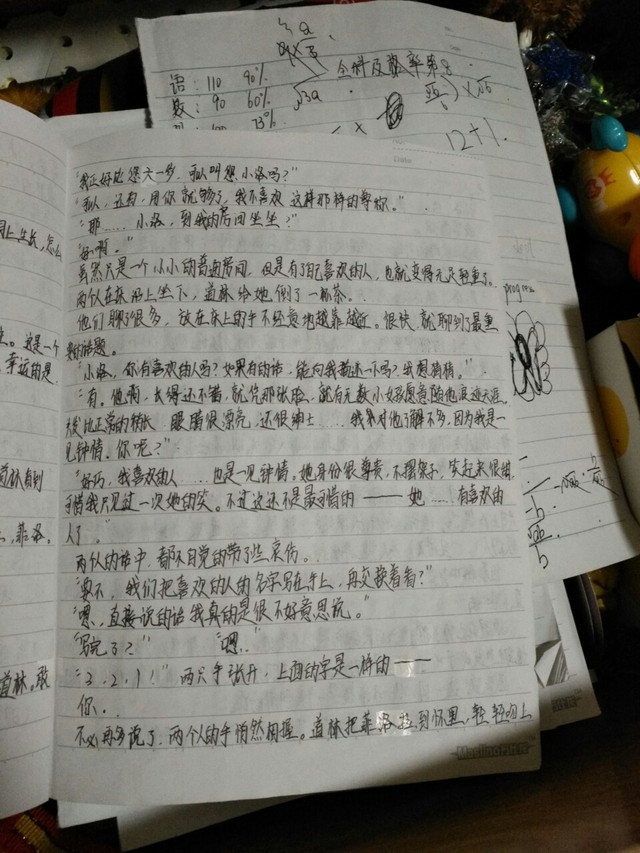 语：110 90%
数：90 60%
73%
全科及
12+1
"我正好比您大一岁，可以叫您小洛吗？"
"可以，还有，用你就够了，我不喜欢这样那样的尊称。"
"那……小洛，到我的房间坐坐？"
"好啊。"
虽然只是一个小小的普通房间，但是有了自己喜欢的人，也就变得无足轻重了。
两个人在床沿上坐下，道林给她倒了一杯茶。
他们聊了很多，放在床上的手不经意地越靠越近。很快，就聊到了最重
要的话题。
"小洛，你有喜欢的人吗？如果有的话，能向我描述一下吗？我想猜猜。"
"有。他啊，长得还不错，就凭那张脸，就有无数小姑娘愿意随他浪迹天涯。
头发比正常的稍长，眼睛很漂亮，还很绅士……我对他了解不多，因为我是一
见钟情。你呢？"
"好巧，我喜欢的人……也是一见钟情。她身份很尊贵，不摆架子，笑起来很甜，
可惜我只见过一次她的笑。不过这还不是最可惜的——她……有喜欢的
人了。"
两个人的话中，都不自觉的带了些哀伤。
"要不，我们把喜欢的人的名字写在手上，再交换着看？"
"嗯，直接说的话我真的是很不好意思说。"
"写完了？" "嗯。"
"3、2、1！"两只手张开，上面的字是一样的——
你。
不必再多说了，两个人的手悄然相握。道林把菲洛拉到怀里，轻轻吻上
道林。敢
菲洛。